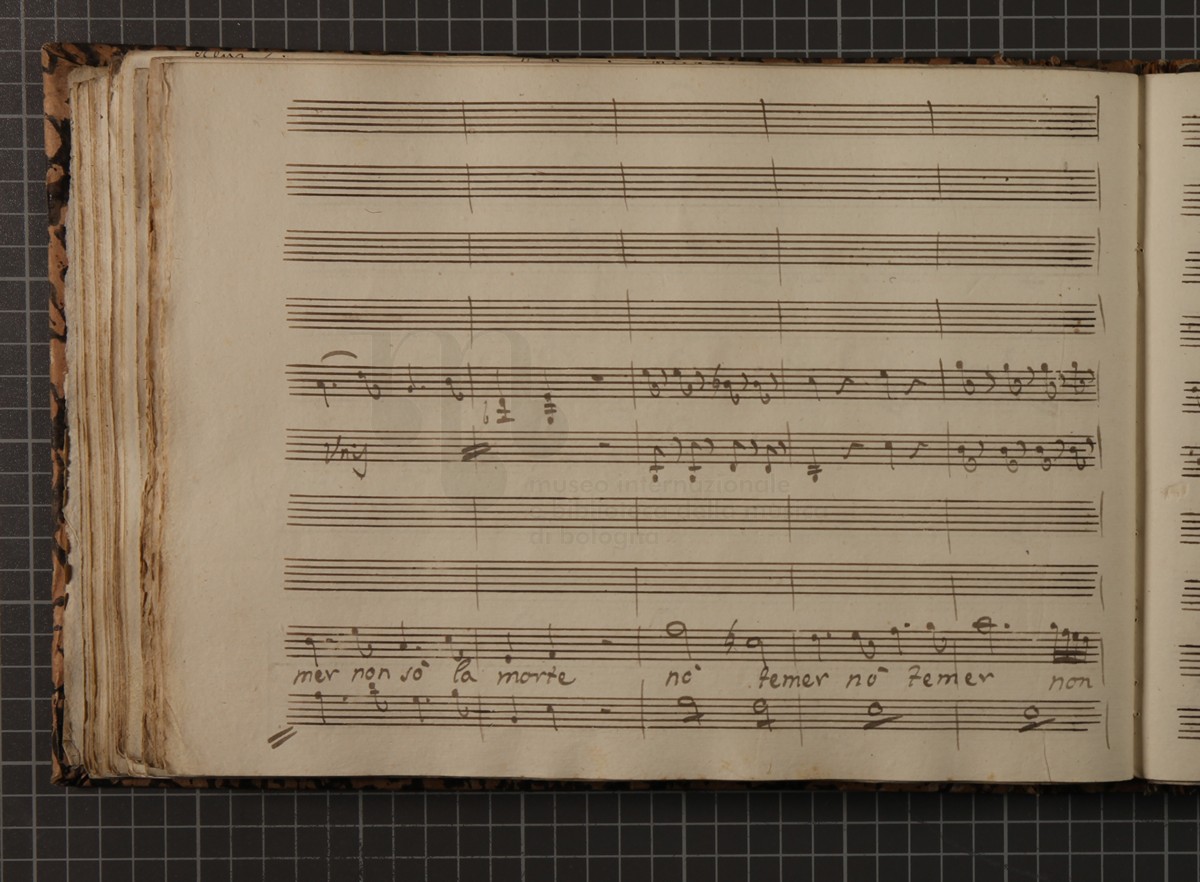 Vnis
museo internazionale
e biblioteca della musica
di bologna
mer non sò la morte nō temer nō temer non